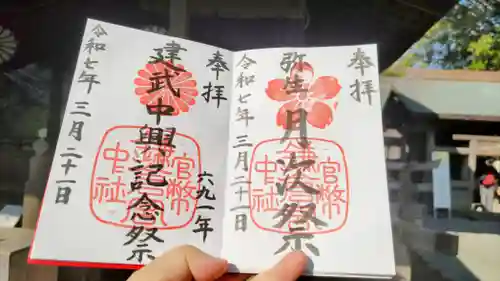 奉拝
弥生 月次祭
令和七年三月二十一日
奉拝
建武中興記念祭
六九一年
令和七年三月二十一日
官幣
中社
官幣
中社